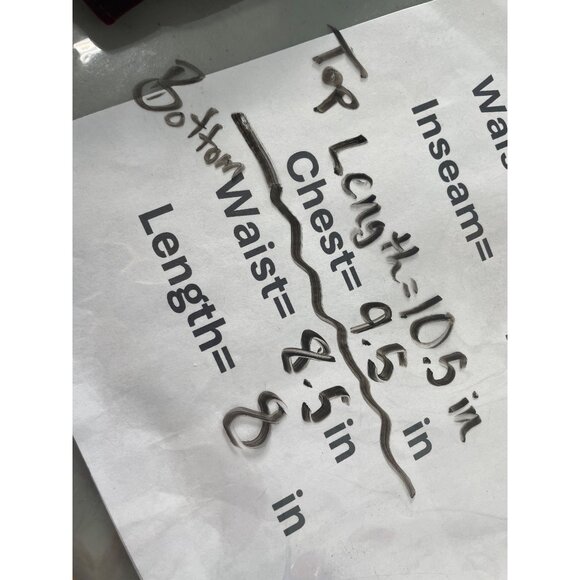 Wai
Inseam=
Top Length=10.5 in
Chest= 9.5 in
Bottom
Waist= 8.5 in
Length= 8 in